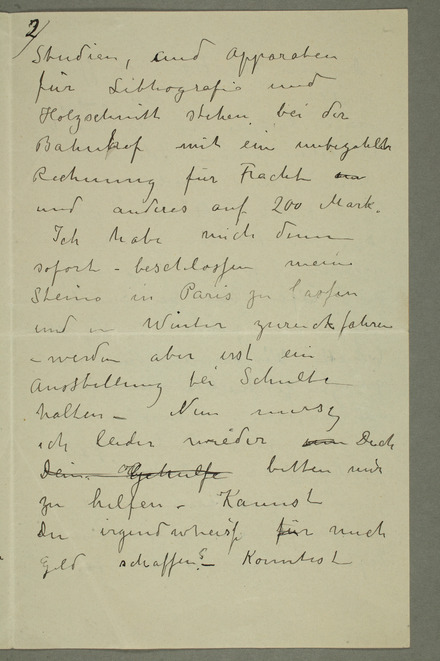 2/
Studien, und Apparaten
für Lithografie und
Holzschnitt stehen bei der
Bahnhof mit ein unbezahlte
Rechnung für Fracht
und anderes auf 200 Mark.
Ich habe mich denn
sofort – beschlossen meine
Steine in Paris zu lassen
und in Winter zurückfahren
– werden aber erst ein
Ausstellung bei Schulte
halten – Nun muss
ich leider wieder Dich
Deine Gehülfe bitten mir
zu helfen – Kannst
Du irgendwheise für mich
Geld schaffen? – Konntest